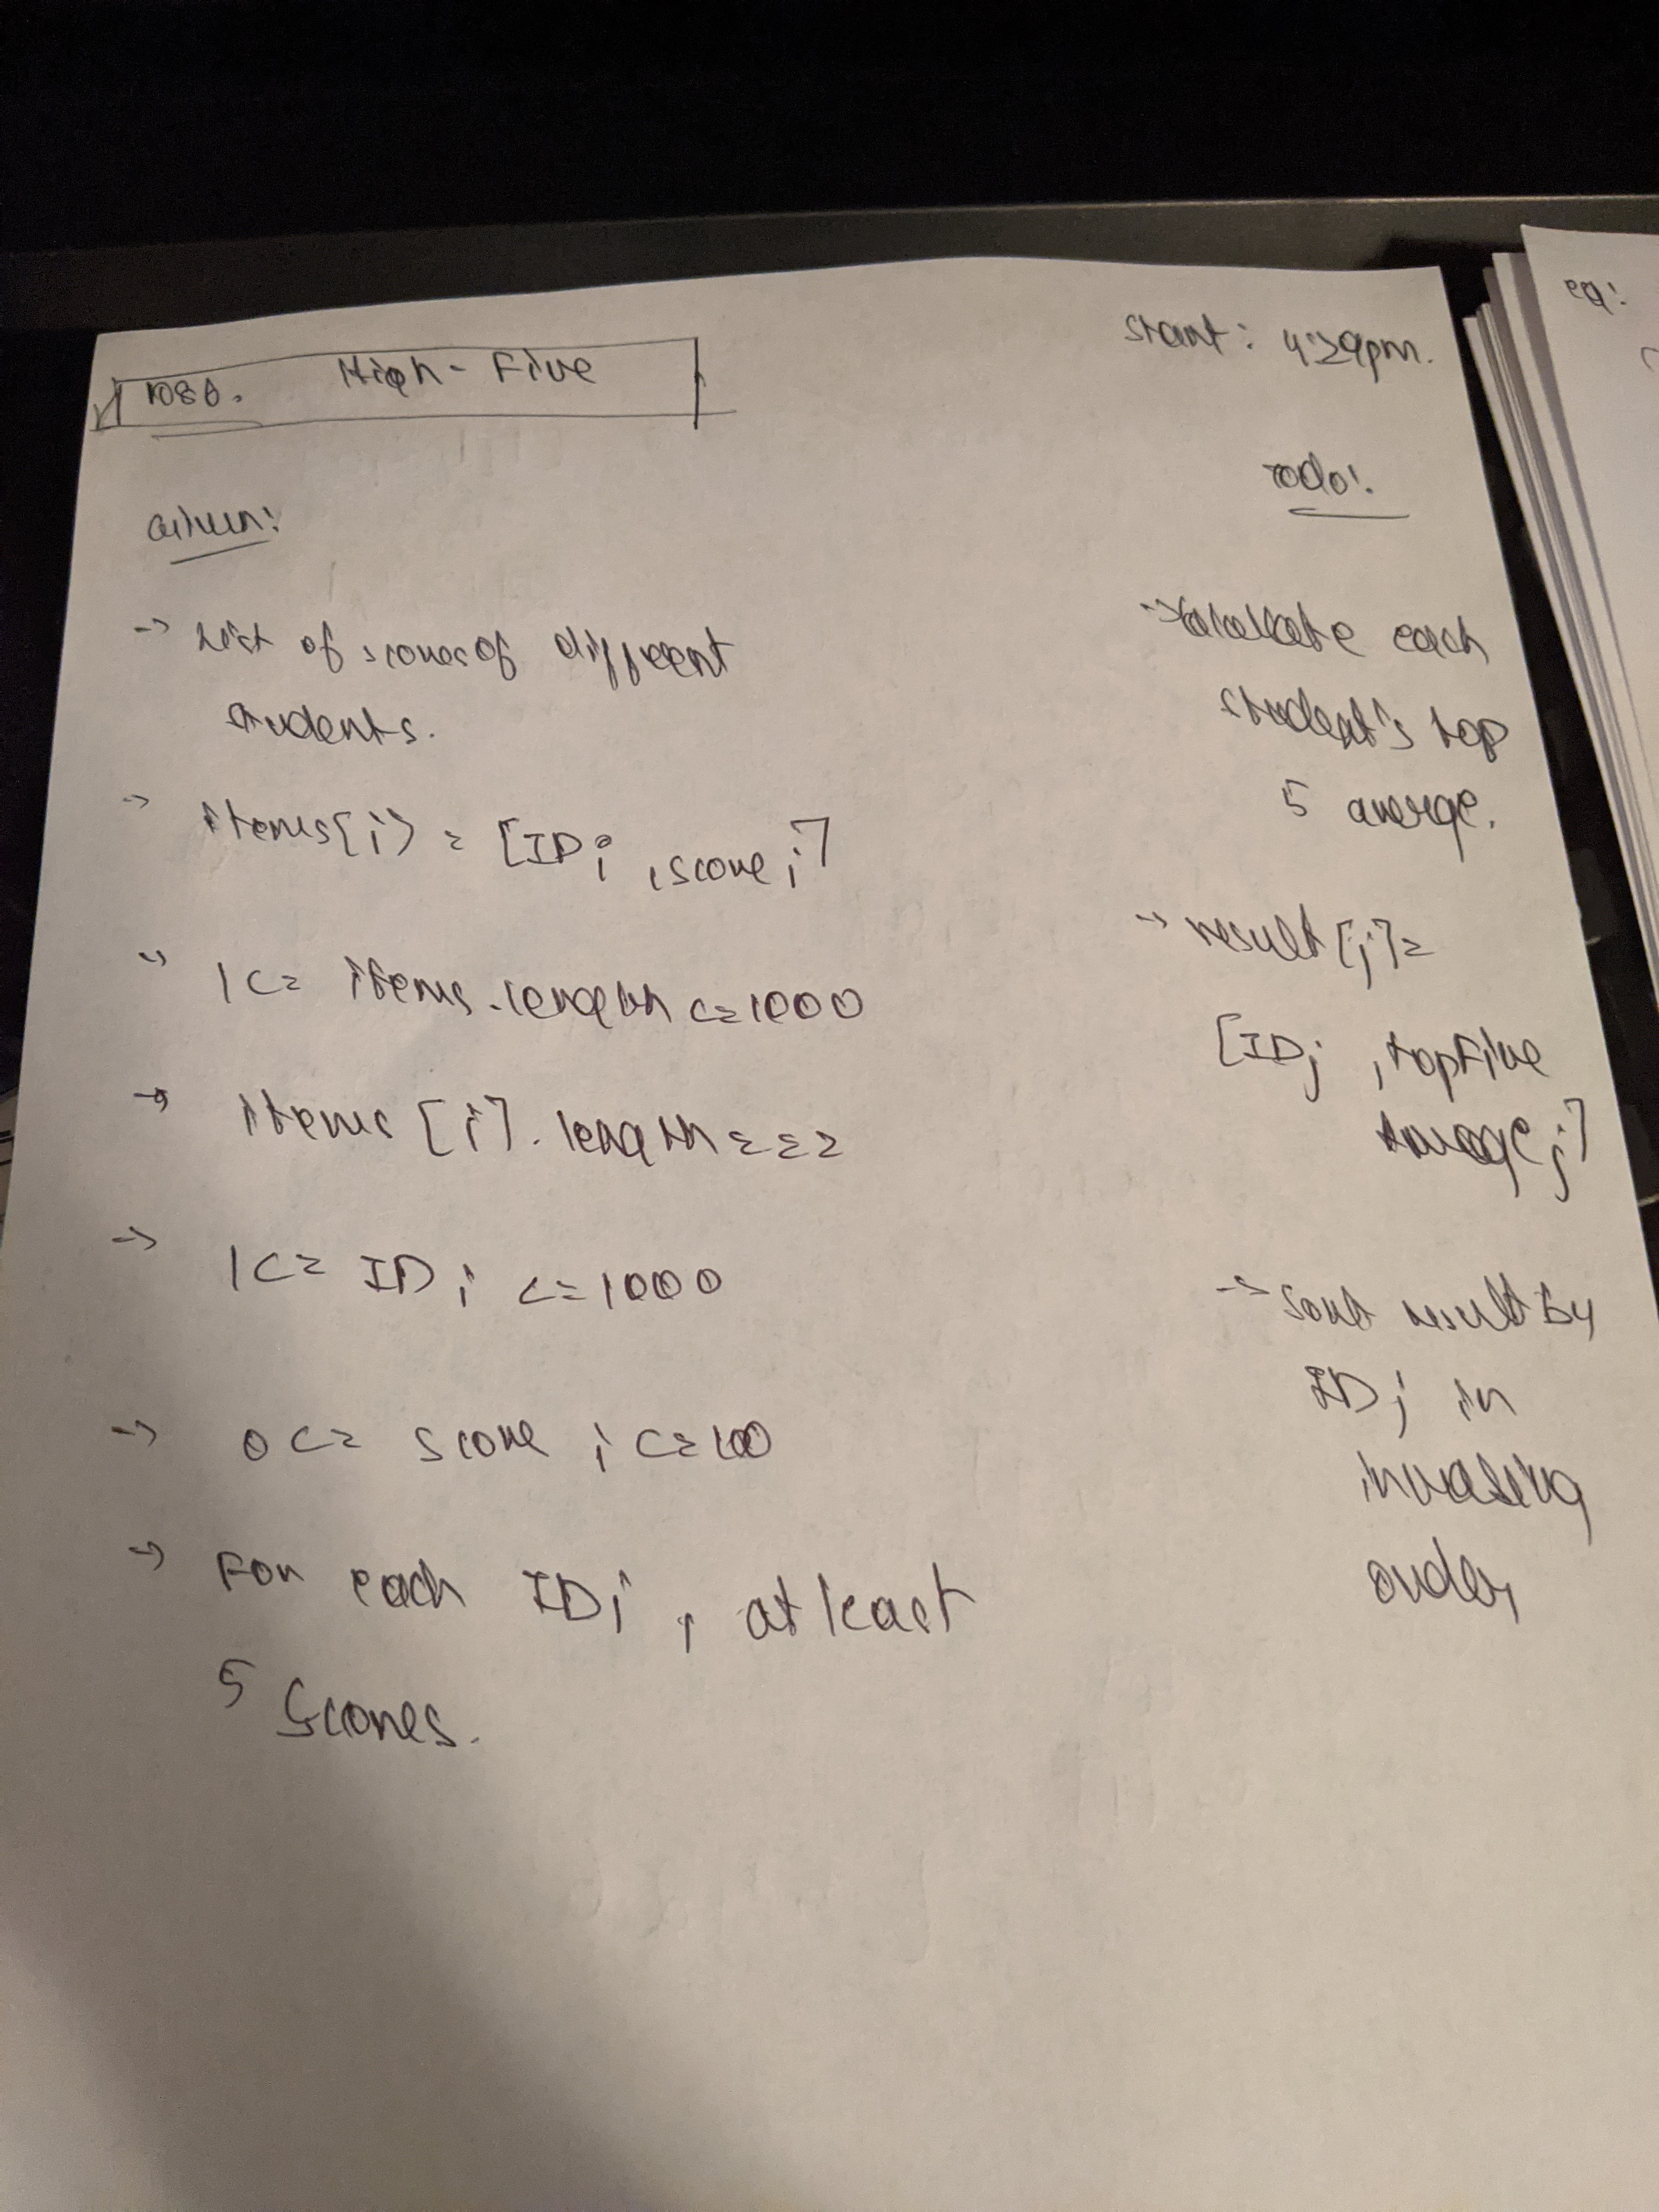 1086. High-Five
start: 4:29pm.
Given:
-> List of scores of different
students.
-> items[i] = [IDi, scorei]
-> 1 <= items.length <= 1000
-> items[i].length == 2
-> 1 <= IDi <= 1000
-> 0 <= scorei <= 100
-> For each IDi, at least
5 scores.
Todo:
-> calculate each
student's top
5 average.
-> result[j] =
[IDj, topFive
Averagej]
-> sort result by
IDj in
increasing
order,
eq: